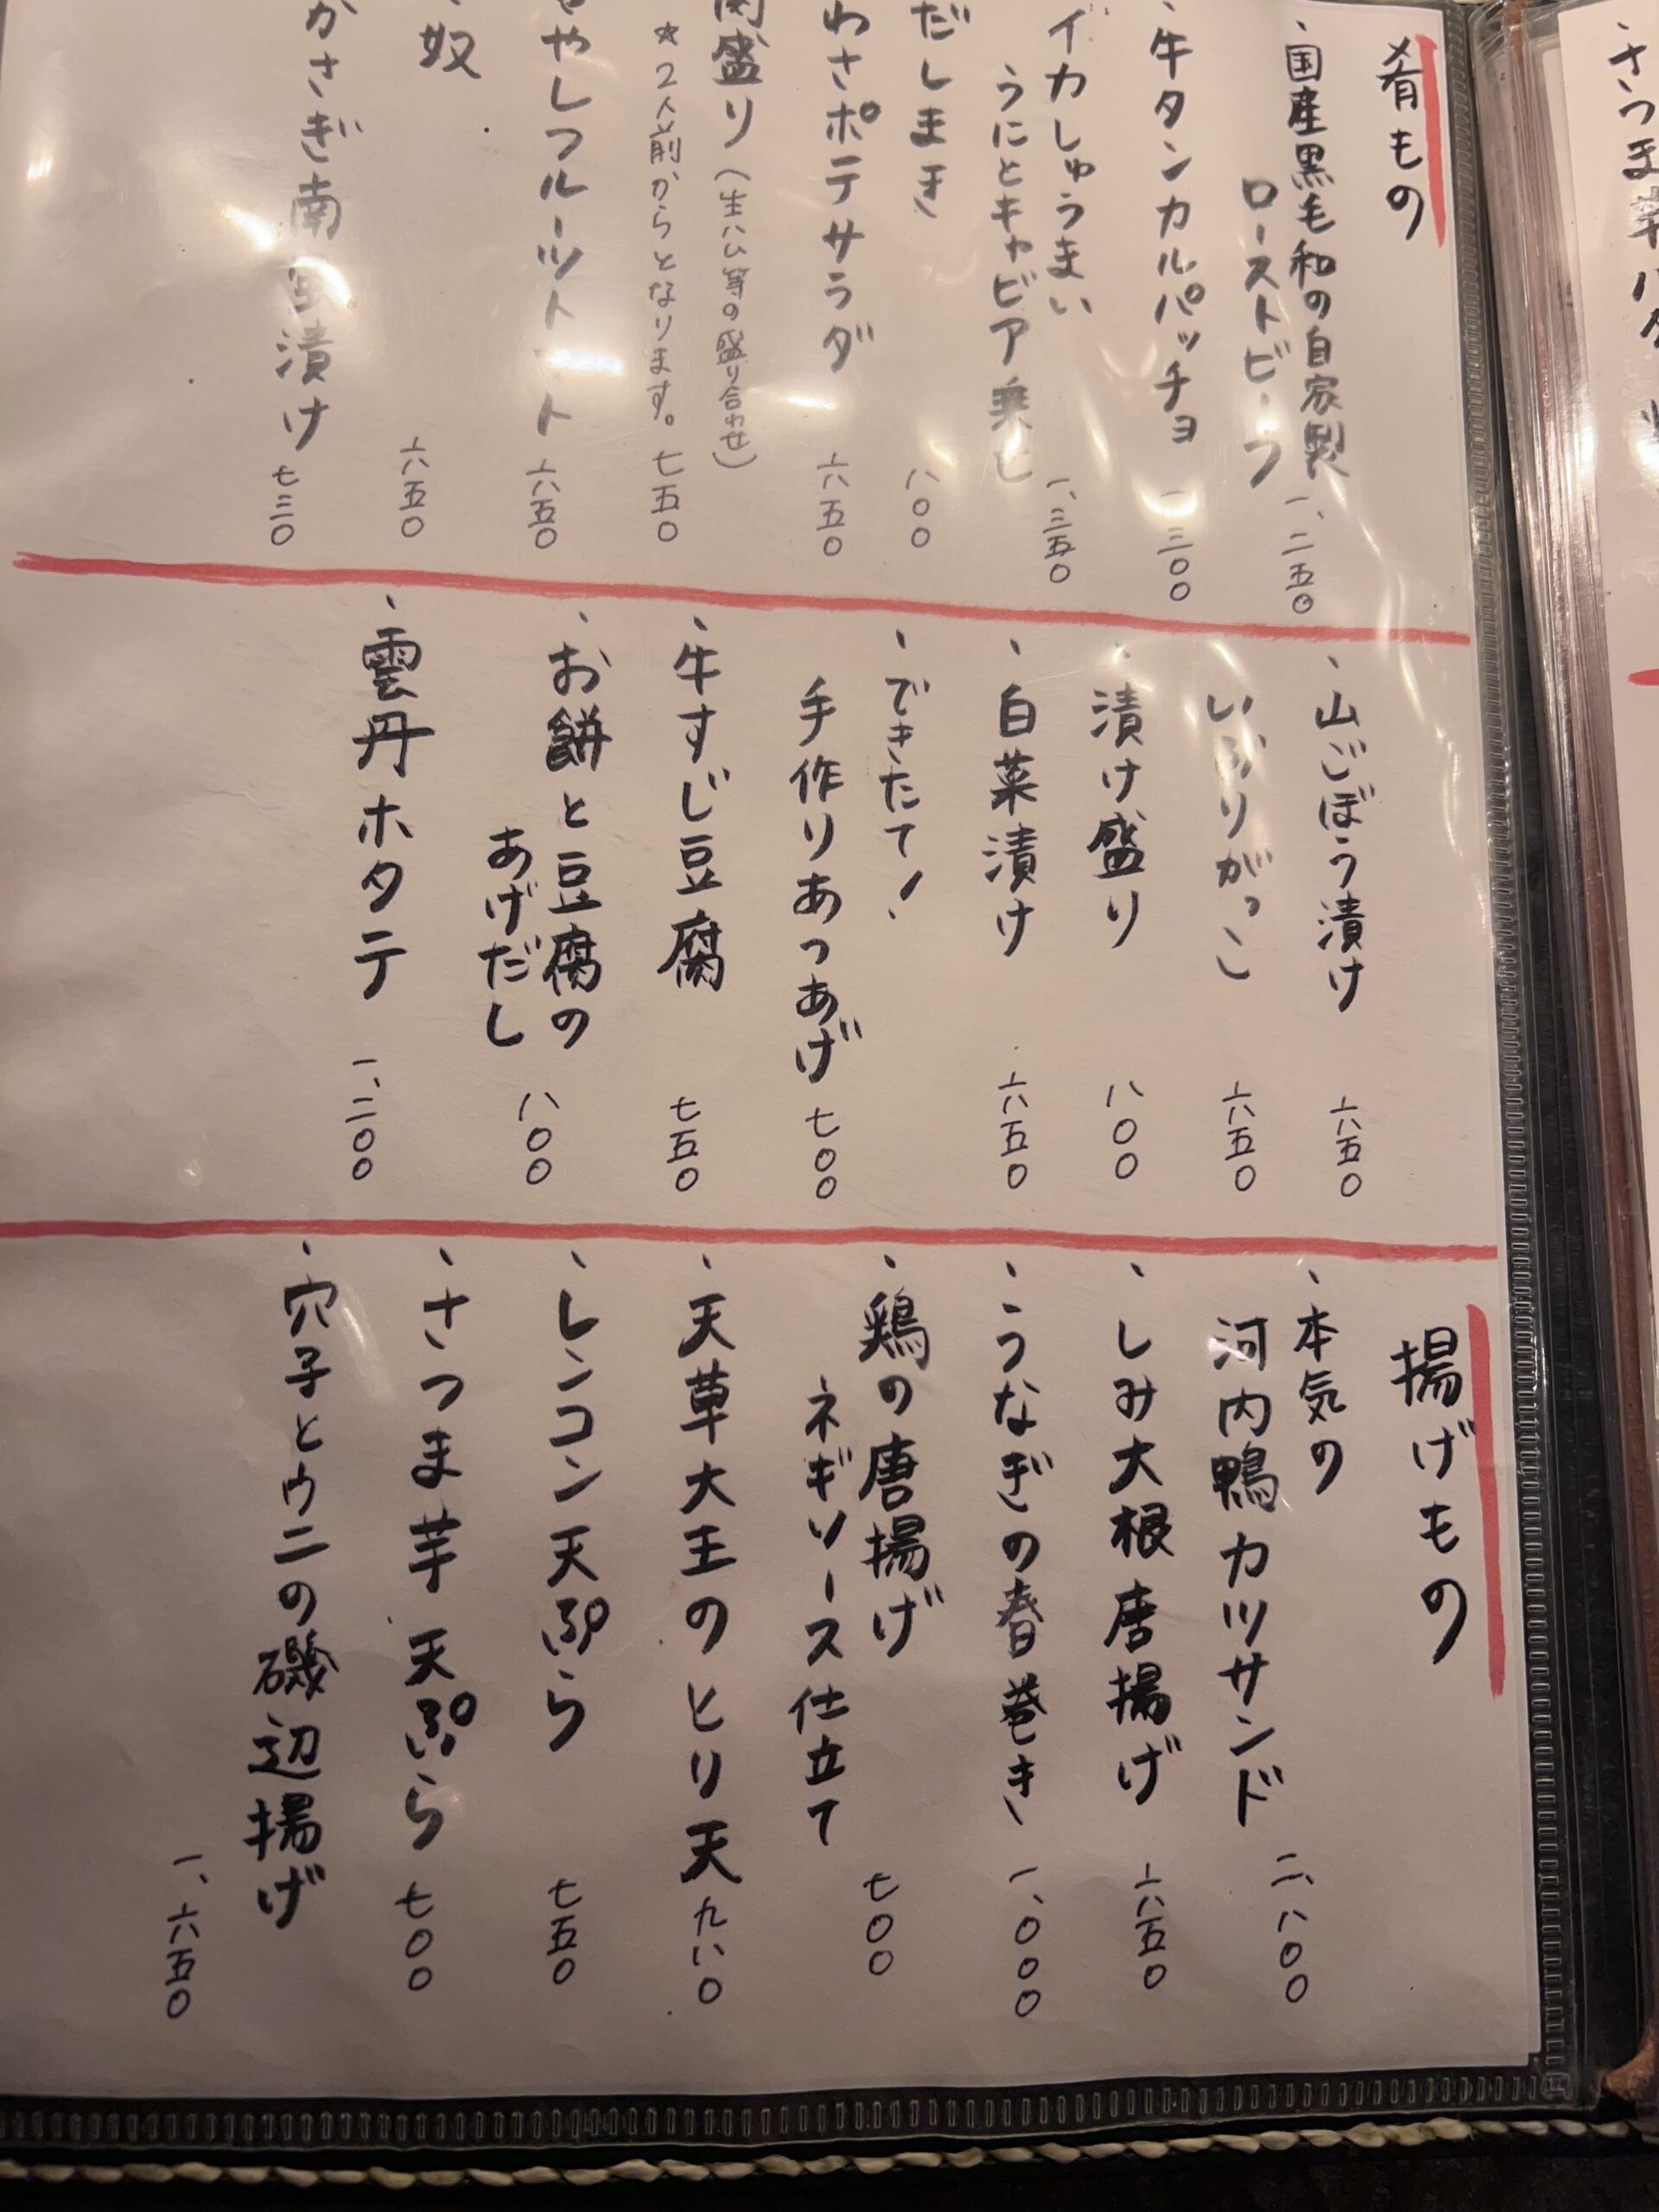 肴もの
、国産黒毛和の自家製
ローストビーフ
一、二五〇
、牛タンカルパッチョ
一三〇〇
イカしゅうまい
うにとキャビア乗せ
一、三五〇
だしまき
八〇〇
わさポテサラダ
六五〇
盛り(生ハム等の盛り合わせ)
☆2人前からとなります。
七五〇
やしフルーツトマト
六五〇
奴
六五〇
かさぎ南蛮漬け
七三〇
、山ごぼう漬け
六五〇
いぶりがっこ
六五〇
、漬け盛り
八〇〇
、白菜漬け
六五〇
、できたて!
手作りあつあげ
七〇〇
、牛すじ豆腐
七五〇
、お餅と豆腐の
あげだし
八〇〇
、雲丹ホタテ
一、二〇〇
揚げもの
、本気の
河内鴨カツサンド
二、八〇〇
、しみ大根唐揚げ
六五〇
、うなぎの春巻き
一、〇〇〇
、鶏の唐揚げ
ネギソース仕立て
七〇〇
、天草大王のとり天
九八〇
、レンコン天ぷら
七五〇
、さつま芋天ぷら
七〇〇
、穴子とウニの磯辺揚げ
一、六五〇